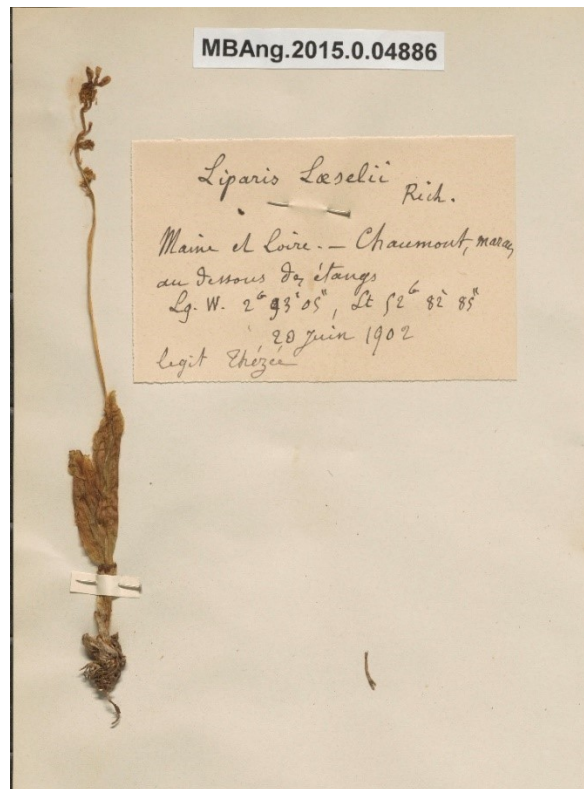 MBAng.2015.0.04886
Liparis Lœselii
Rich.
Maine et Loire. — Chaumont, marais
au dessous des étangs
Lg. W. 2ᴳ 93‵ 05‶, Lt 52ᴳ 82‵ 85‶
20 Juin 1902
legit Thézée